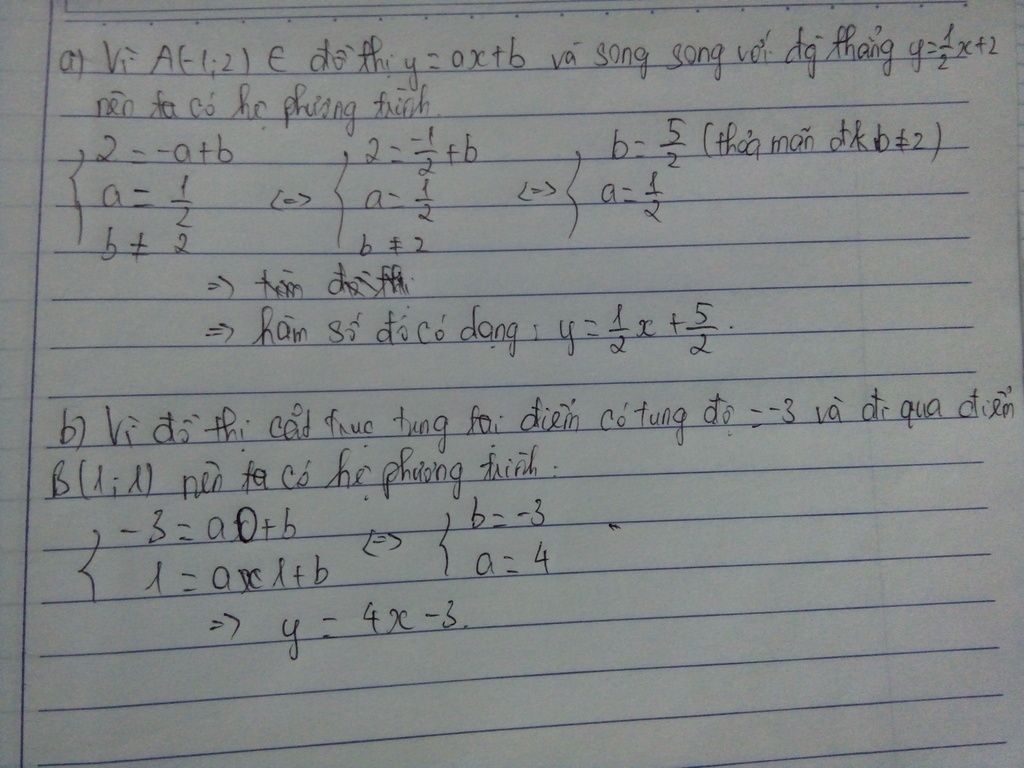 a) Vì A(-1;2) ∈ đồ thị y = ax+b và song song với đg thẳng y = 1/2 x + 2
nên ta có hệ phương trình.
{ 2 = -a+b <=> { 2 = -1/2 + b <=> { b = 5/2 (thỏa mãn đk b ≠ 2)
a = 1/2 a = 1/2 a = 1/2
b ≠ 2 b ≠ 2
=> hàm số đó có dạng: y = 1/2 x + 5/2.
b) Vì đồ thị cắt trục tung tại điểm có tung độ = -3 và đi qua điểm
B(1;1) nên ta có hệ phương trình:
{ -3 = a0+b <=> { b = -3
1 = ax1+b a = 4
=> y = 4x - 3.